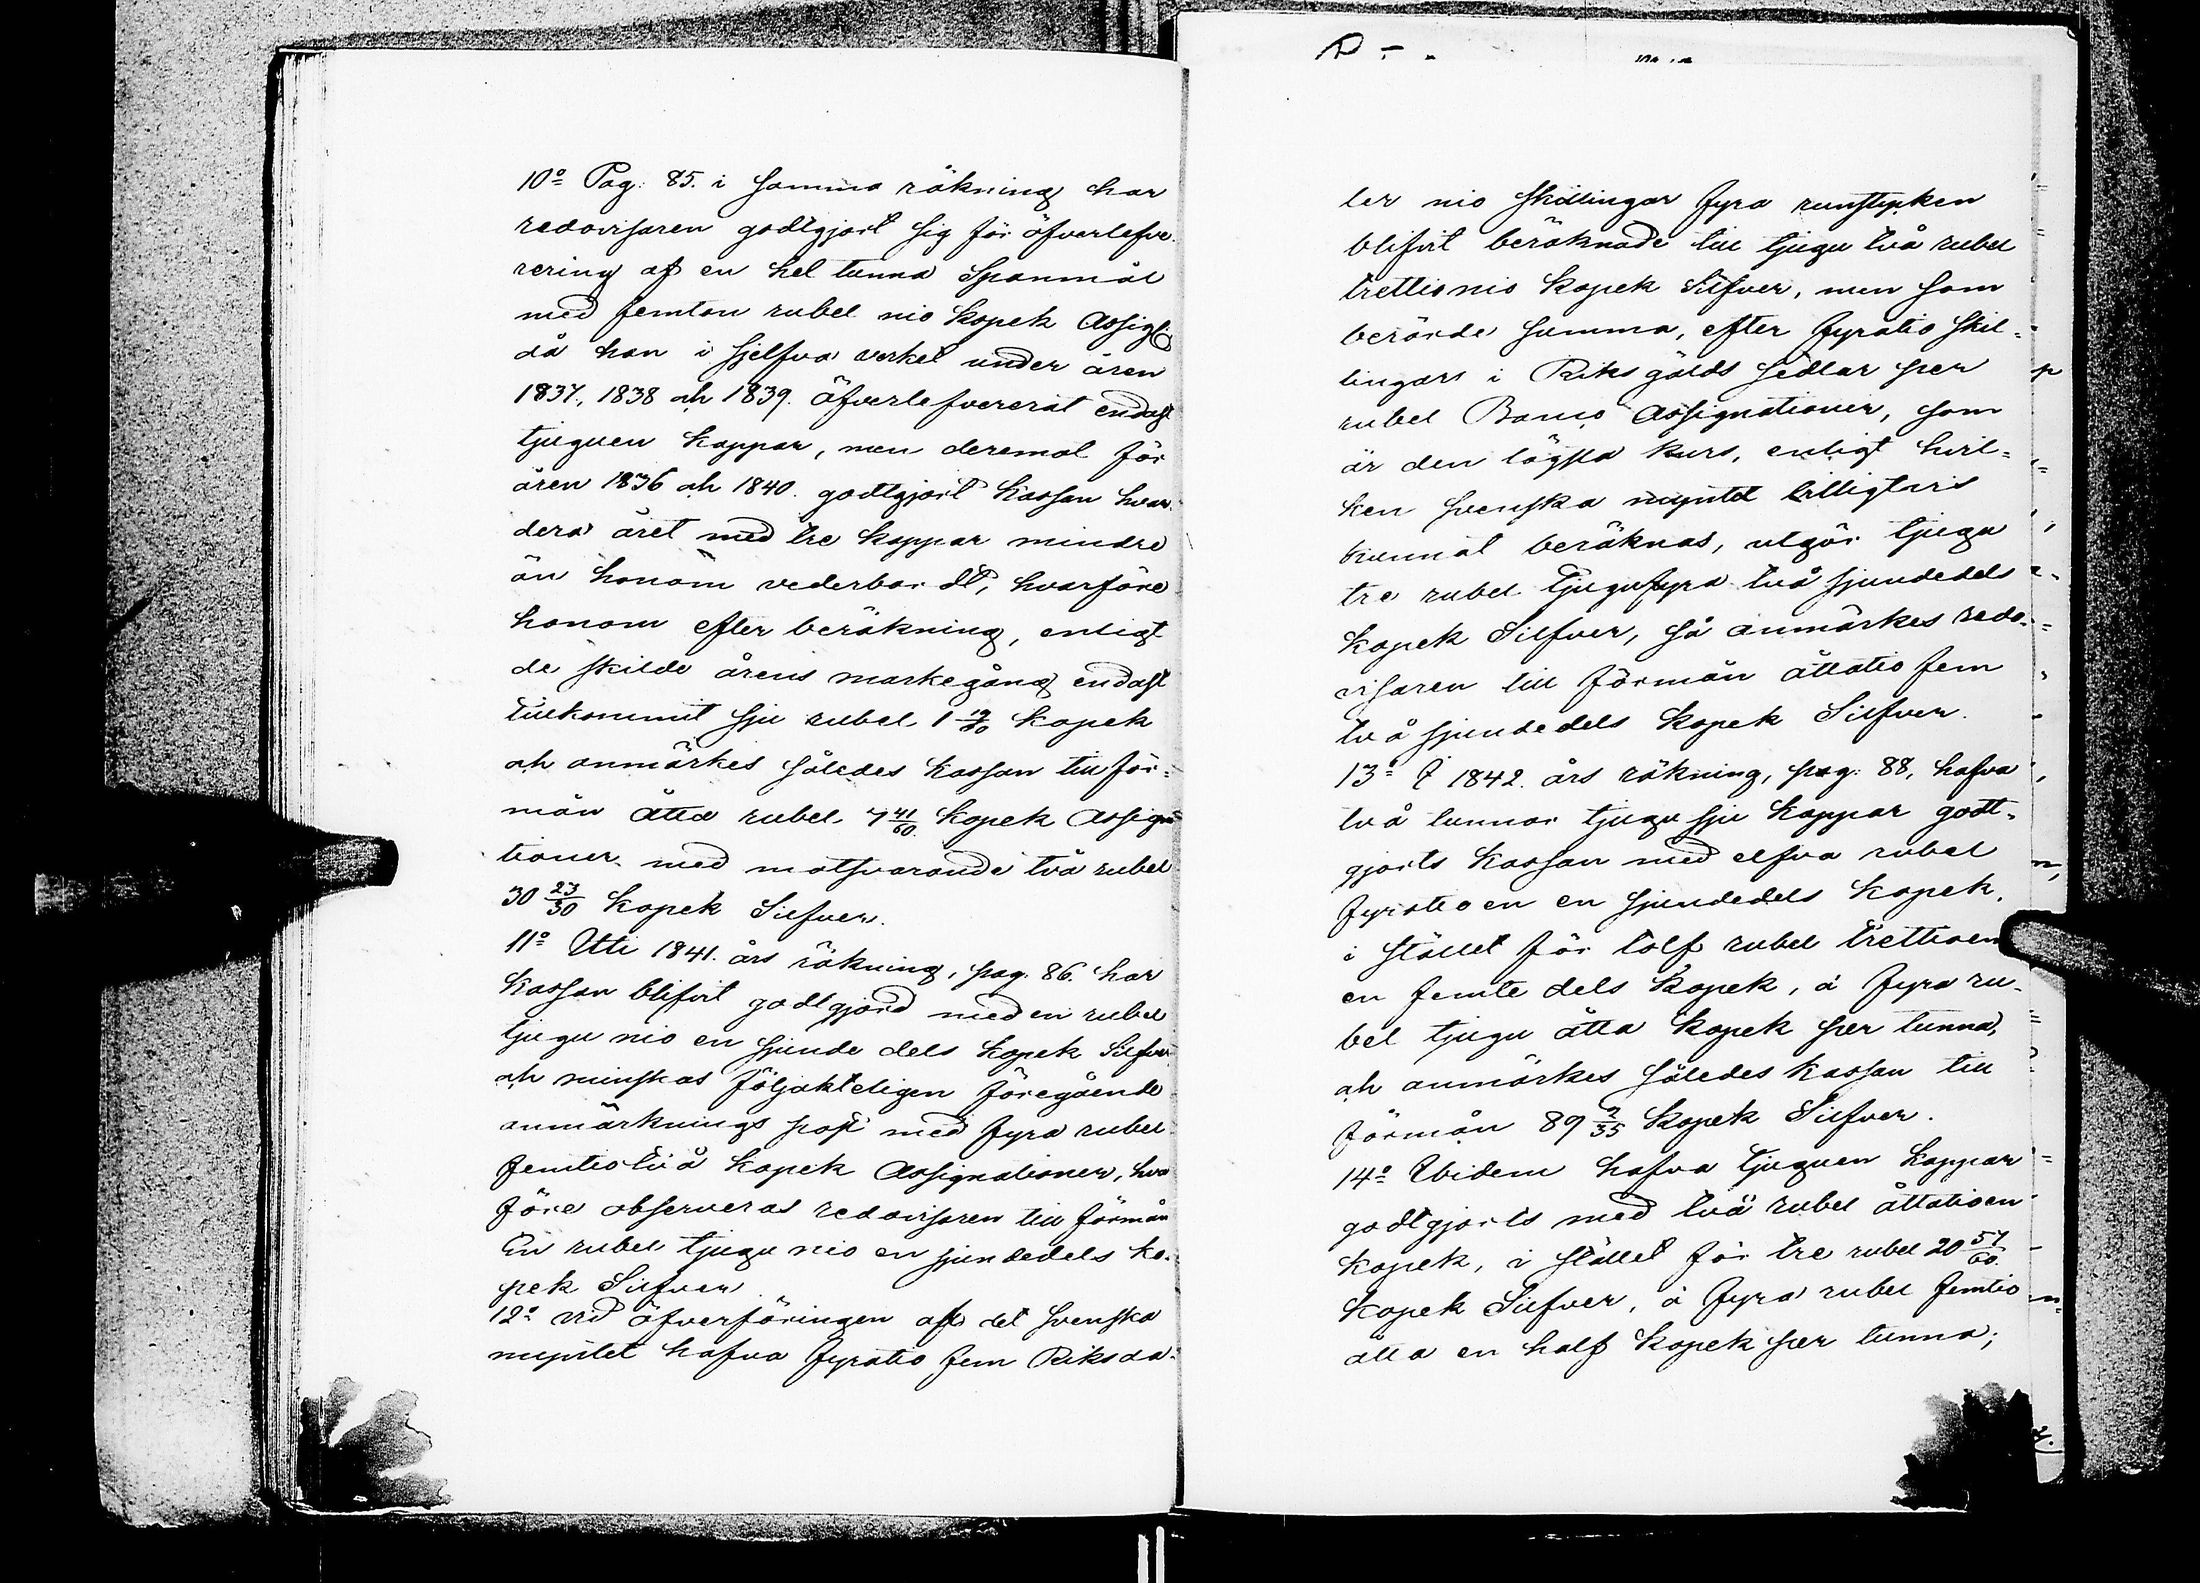 10º Pag: 85. i samma räkning har
redovisaren godtgjort sig för öfverlefve-
rering af en hel tunna Spanmål
med femton rubel nio kopek Assign:
då han i sjelfva verket under åren
1837, 1838 och 1839. öfverlefvererat endast
tjuguen kappar, men deremot för
åren 1836 och 1840. godtgjort kassan hvar-
dera året med tre kappar mindre
än honom vederbordt, hvarföre
honom efter beräkning, enligt
de skilde årens markegång endast
tillkommit sju rubel 1 19/30 kopek
och anmärkes således kassan till för-
mån åtta rubel 7 41/60 kopek Assigna
tioner med motsvarande två rubel
30 23/30 kopek Silfver.
11º Uti 1841. års räkning, pag. 86. har
kassan blifvit godtgjord med en rubel
tjugu nio en sjunde dels kopek Silfver
och minskas följakteligen föregående
anmärknings post med fyra rubel
femtiotvå kopek Assignationer, hvar
före observeras redovisaren till förmån
En rubel tjugu nio en sjundedels ko-
pek Silfver.
12º vid öfverföringen af det svenska
myntet hafva fyratio fem Riksda-
ler nio skillingar fyra runstycken
blifvit beräknade till tjugu två rubel
trettionio kopek Silfver, men som
berörde summa, efter fyratio skil-
lingars i Riksgälds sedlar per
rubel Banco Assignationer, som
är den lägsta kurs, enligt hvil-
ken svenska myntet billigtvis
kunnat beräknas, utgör tjugu
tre rubel tjugufyra två sjundedels
kopek Silfver, så anmärkes redo-
visaren till förmån åttatio fem
två sjundedels kopek Silfver.
13º I 1842. års räkning, pag: 88, hafva
två tunnor tjugu sju kappar godt-
gjorts kassan med elfva rubel
fyratio en en sjundedels kopek,
i stället för tolf rubel trettioen
en femte dels kopek, á fyra ru-
bel tjugu åtta kopek per tunna,
och anmärkes således kassan till
förmån 89 2/35 kopek Silfver.
14º Ibidem hafva tjuguen kappar
godtgjorts med två rubel åttatioen
kopek, i stället för tre rubel 20 57/60
kopek Silfver, á fyra rubel femtio
åtta en half kopek per tunna;